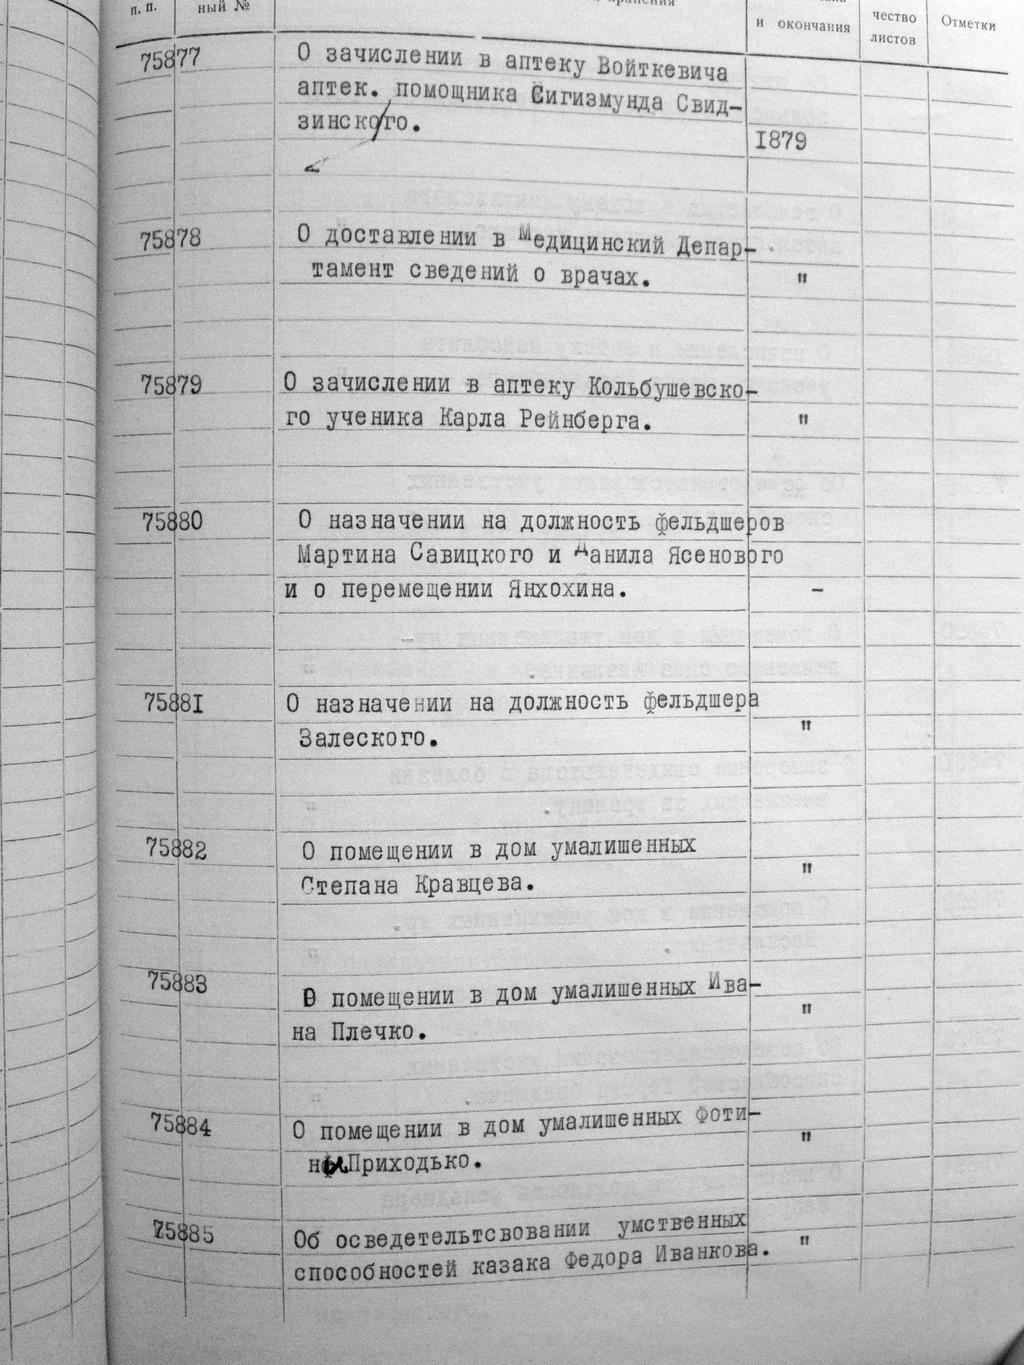 п.п.
ный №
хранения
и окончания
чество
листов
Отметки
75877
О зачислении в аптеку Войткевича
аптек. помощника Сигизмунда Свид-
зинского.
1879
75878
О доставлении в Медицинский Депар-
тамент сведений о врачах.
"
75879
О зачислении в аптеку Кольбушевско-
го ученика Карла Рейнберга.
"
75880
О назначении на должность фельдшеров
Мартина Савицкого и Данила Ясенового
и о перемещении Янхохина.
-
75881
О назначении на должность фельдшера
Залеского.
"
75882
О помещении в дом умалишенных
Степана Кравцева.
"
75883
О помещении в дом умалишенных Ива-
на Плечко.
"
75884
О помещении в дом умалишенных Фоти-
ны Приходько.
"
75885
Об осведетельтсвовании умственных
способностей казака Федора Иванкова.
"